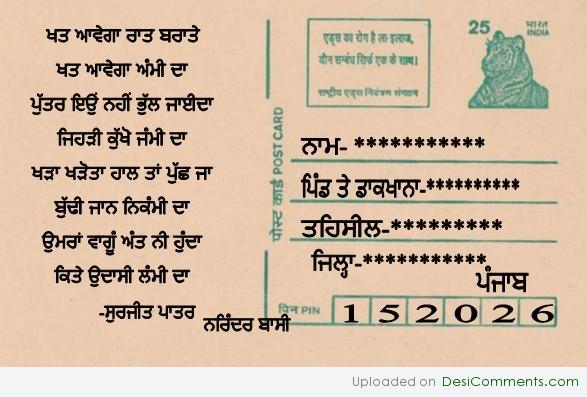 ਖਤ ਆਵੇਗਾ ਰਾਤ ਬਰਾਤੇ
ਖਤ ਆਵੇਗਾ ਅੰਮੀ ਦਾ
ਪੁੱਤਰ ਇਉਂ ਨਹੀਂ ਭੁੱਲ ਜਾਈਦਾ
ਜਿਹੜੀ ਕੁੱਖੋ ਜੰਮੀ ਦਾ
ਖੜਾ ਖੜੋਤਾ ਹਾਲ ਤਾਂ ਪੁੱਛ ਜਾ
ਬੁੱਢੀ ਜਾਨ ਨਿਕੰਮੀ ਦਾ
ਉਮਰਾਂ ਵਾਗੂੰ ਅੰਤ ਨੀ ਹੁੰਦਾ
ਕਿਤੇ ਉਦਾਸੀ ਲੰਮੀ ਦਾ
-ਸੁਰਜੀਤ ਪਾਤਰ
ਨਰਿੰਦਰ ਬਾਸੀ
एड्स का रोग है ला-इलाज,
यौन सम्बंध सिर्फ एक के साथ।
राष्ट्रीय एड्स नियंत्रण संगठन
25
भारत
INDIA
पोस्ट कार्ड POST CARD
ਨਾਮ- ***********
ਪਿੰਡ ਤੇ ਡਾਕਖਾਨਾ-**********
ਤਹਿਸੀਲ-*********
ਜਿਲ੍ਹਾ-***********
ਪੰਜਾਬ
पिन PIN 152026
Uploaded on DesiComments.com